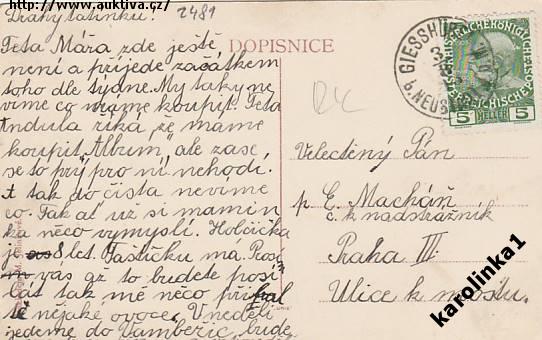 Zdroj: www.auktiva.cz
2481
Drahý tatínku!
Teta Mára zde ještě
není a přijede začátkem
toho dle týdne. My taky ne
víme co máme koupit. Teta
Andula říká, že mame
koupit Album, ale zase
se to prý pro ní nehodí.
A tak do čista nevíme
co. Tak ať už si mamin
ka něco vymyslí. Holčička
je 8 let. Taštičku má. Pros
ím vás až to budete posí
lat tak mě něco při
tě nějaké ovoce. V neděli
jedeme do Vamberic, bude
DOPISNICE
GIESSHÜBEL
b. NEUST
5 HELLER 5
Velectěný Pán
p. E. Macháň
c. k. nadstrážník
Praha III.
Ulice k mostu.
karolinka1